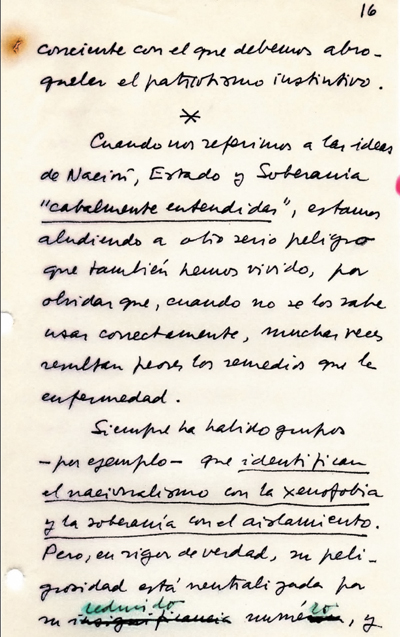 16
conciente con el que debemos abro-
quelar el patriotismo instintivo.
Cuando nos referimos a las ideas
de Nación, Estado y Soberanía
"cabalmente entendidas", estamos
aludiendo a otro serio peligro
que también hemos vivido, por
olvidar que, cuando no se los sabe
usar correctamente, muchas veces
resultan peores los remedios que la
enfermedad.
Siempre ha habido grupos
-por ejemplo- que identifican
el nacionalismo con la xenofobia
y la soberanía con el aislamiento.
Pero, en rigor de verdad, su peli-
grosidad está neutralizada por
reducido
su insignificancia número, y